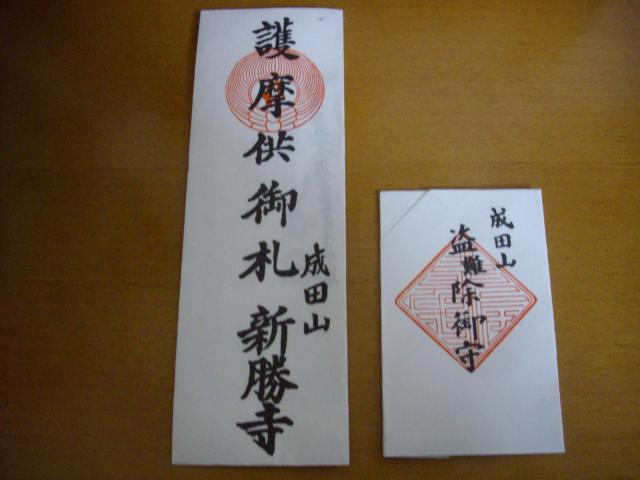 護摩供御札
成田山
新勝寺
成田山
盗難除御守